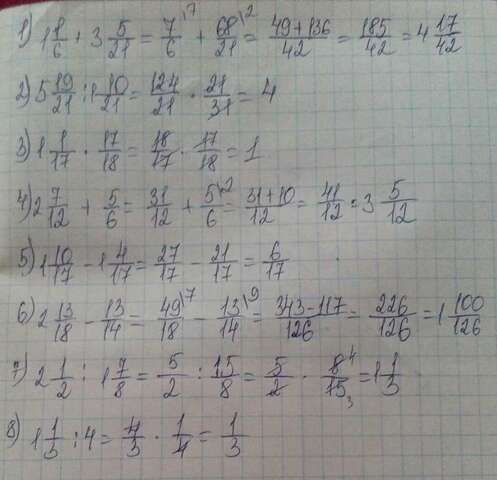 1) 1 1/6 + 3 5/21 = 7/6 \7 + 68/21 \2 = 49+136/42 = 185/42 = 4 17/42
2) 5 19/21 : 1 10/21 = 124/21 · 21/31 = 4
3) 1 1/17 · 17/18 = 18/17 · 17/18 = 1
4) 2 7/12 + 5/6 = 31/12 + 5/6 \2 = 31+10/12 = 41/12 = 3 5/12
5) 1 10/17 - 1 4/17 = 27/17 - 21/17 = 6/17
6) 2 13/18 - 13/14 = 49/18 \7 - 13/14 \9 = 343-117/126 = 226/126 = 1 100/126
7) 2 1/2 : 1 7/8 = 5/2 : 15/8 = 5/2 · 8 4/15 3 = 1 1/3
8) 1 1/3 : 4 = 4/3 · 1/4 = 1/3